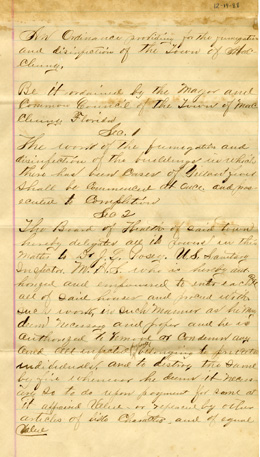 12-19-88
An Ordinance providing for the fumigation
and disinfection of the Town of Mac
Clenny.
Be it ordained by the Mayor and
Common Council of the Town of Mac
Clenny Florida,
Sec. 1
The work of the fumigation and
disinfection of the buildings in which
there has been Cases of
Shall be Commenced at Once and pro
ceeded to Completion
Sec 2
The Board of Health of Said town
hereby delegates all its power in this
Matter to Dr. J. Y. Posey. U.S. Sanitary
Inspector M.H.S. who is hereby auth
orized and empowered to enter each &
all of Said houses and proceed with
such work, in such Manner as he may
deem necessary and proper and he is
Authorized to remove or Condemn any
and all infected belonging to private
individuals, and to destroy the Same
by fire whenever he deems it Neces
sary so to do upon payment for same at
it appraised Value or replaced by other
articles of like Character and of equal
Value